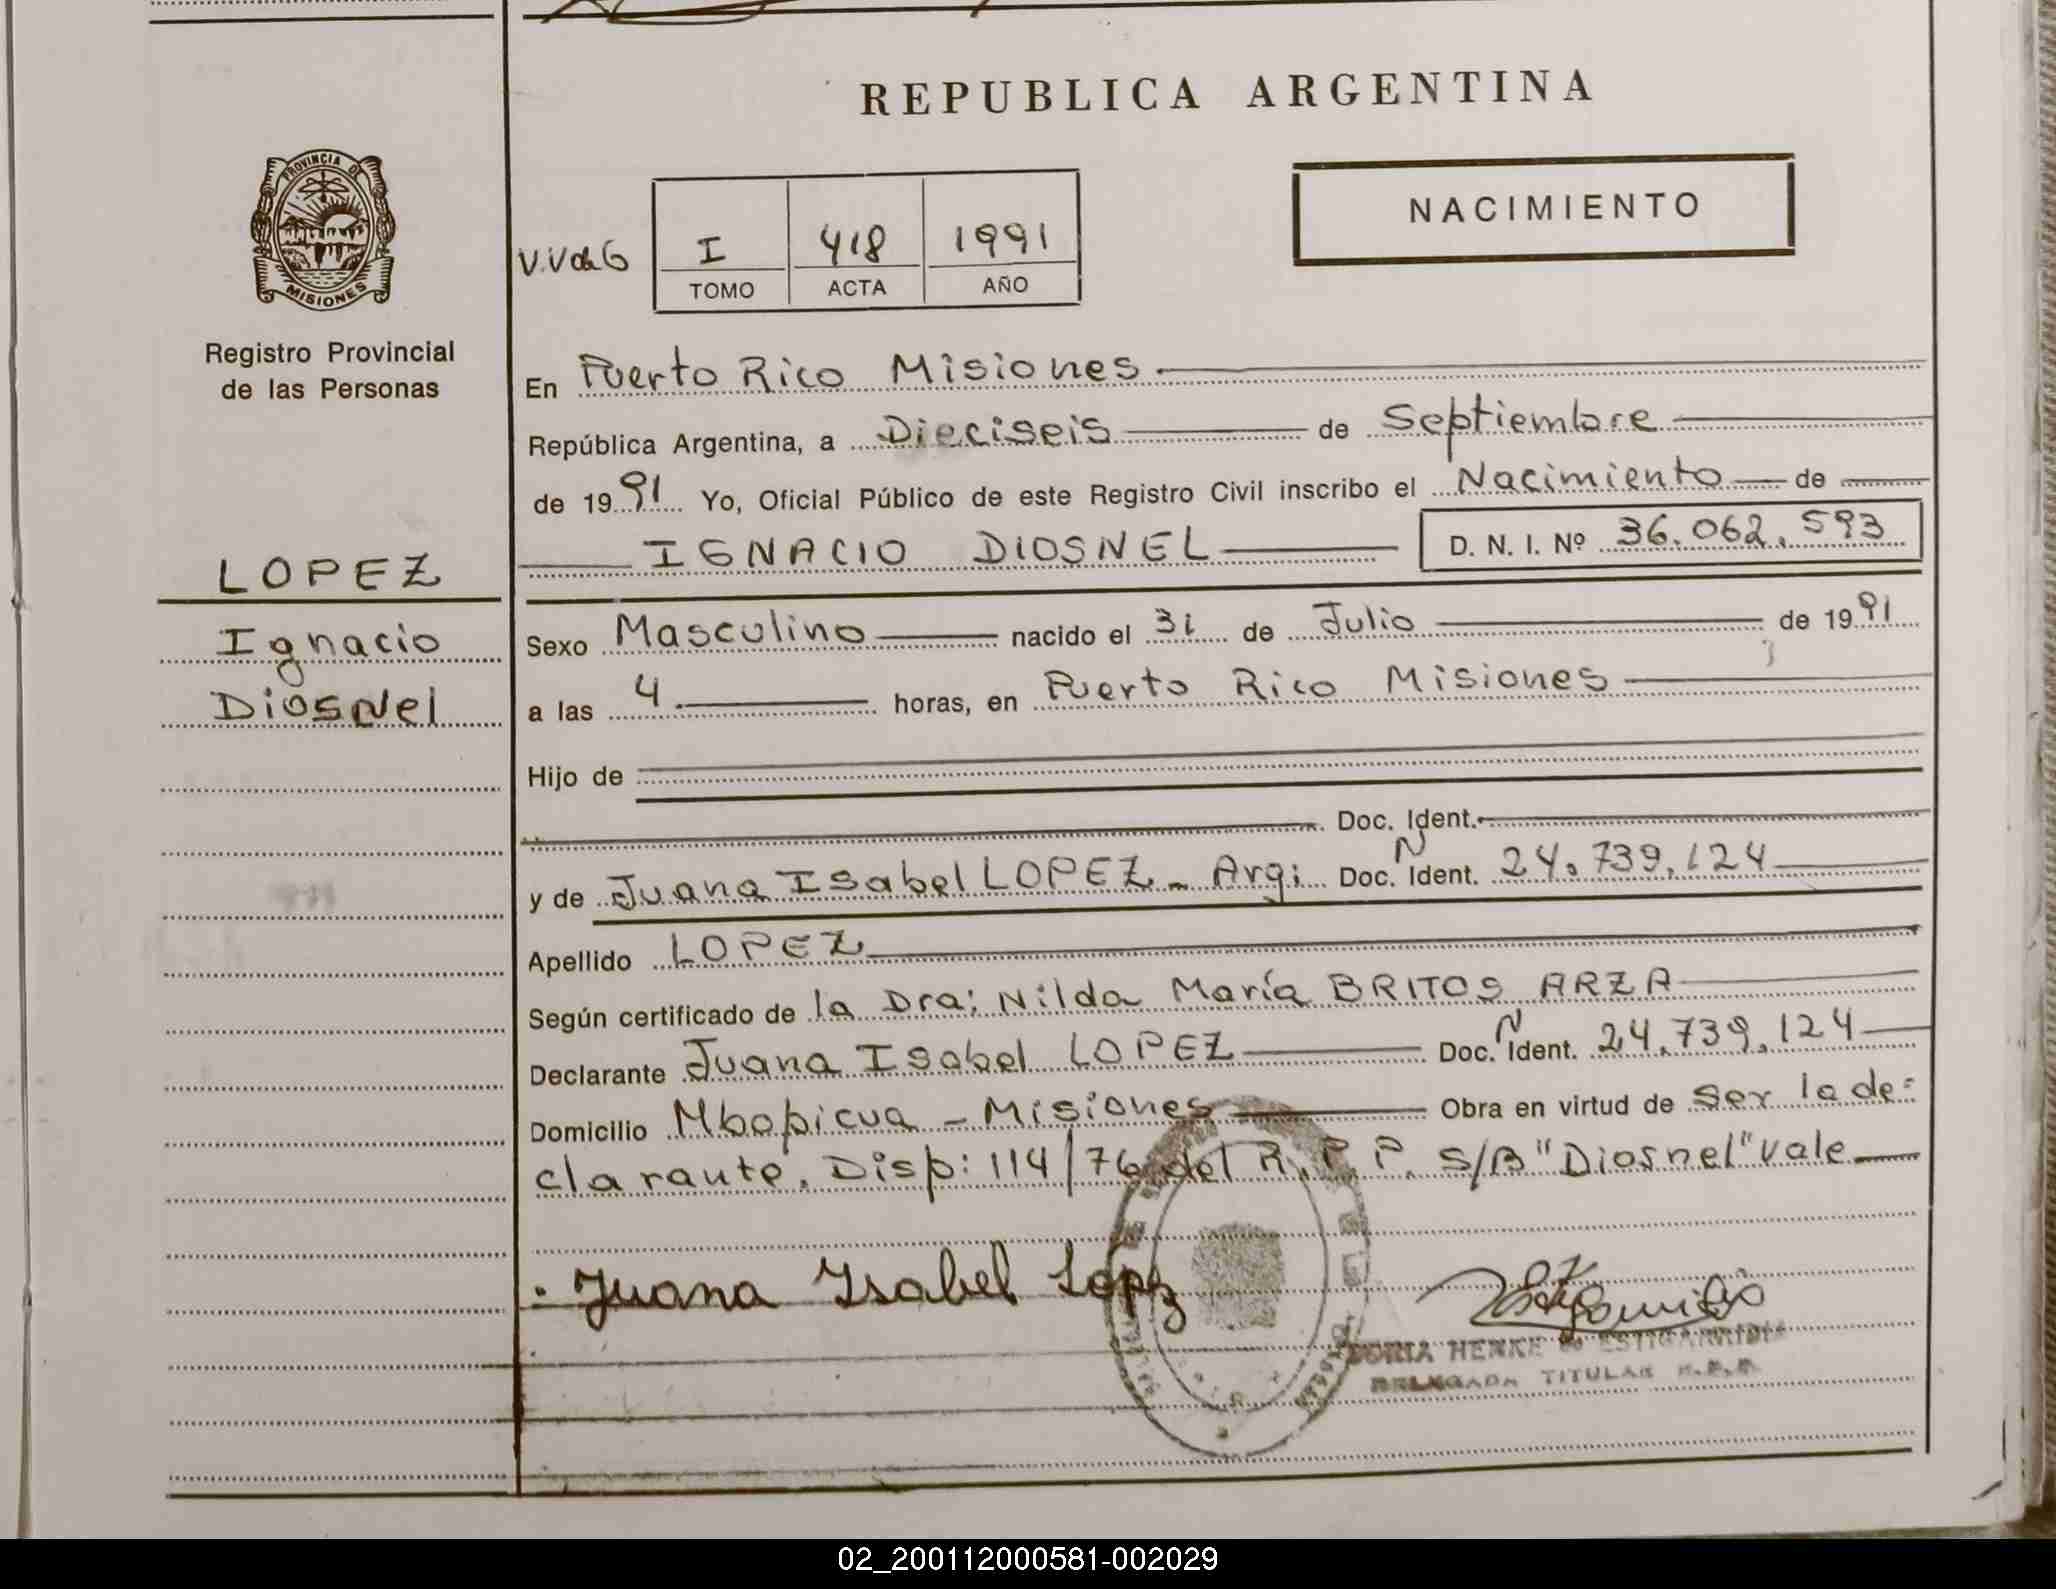 REPUBLICA ARGENTINA
PROVINCIA DE
MISIONES
NACIMIENTO
V.V de G
I 418 1991
TOMO ACTA AÑO
Registro Provincial
de las Personas
En Puerto Rico Misiones
República Argentina, a Dieciseis de Septiembre
de 1991 Yo, Oficial Público de este Registro Civil inscribo el Nacimiento de
IGNACIO DIOSNEL D. N. I. Nº 36.062.593
LOPEZ
Ignacio
Diosnel
Sexo Masculino nacido el 31 de Julio de 1991
a las 4 horas, en Puerto Rico Misiones
Hijo de
Doc. Ident.
y de Juana Isabel LOPEZ - Arg; Doc. N Ident. 24.739.124
Apellido LOPEZ
Según certificado de la Dra; Nilda María BRITOS ARZA
Declarante Juana Isabel LOPEZ Doc. N Ident. 24.739.124
Domicilio Mbopicua - Misiones Obra en virtud de ser la de=
clarante. Disp: 114/76 del R.P.P. S/B "Diosnel" vale
Juana Isabel Lopez
HENKE de ESTIGARRIBIA
DELEGADA TITULAR R.P.P.
02_200112000581-002029